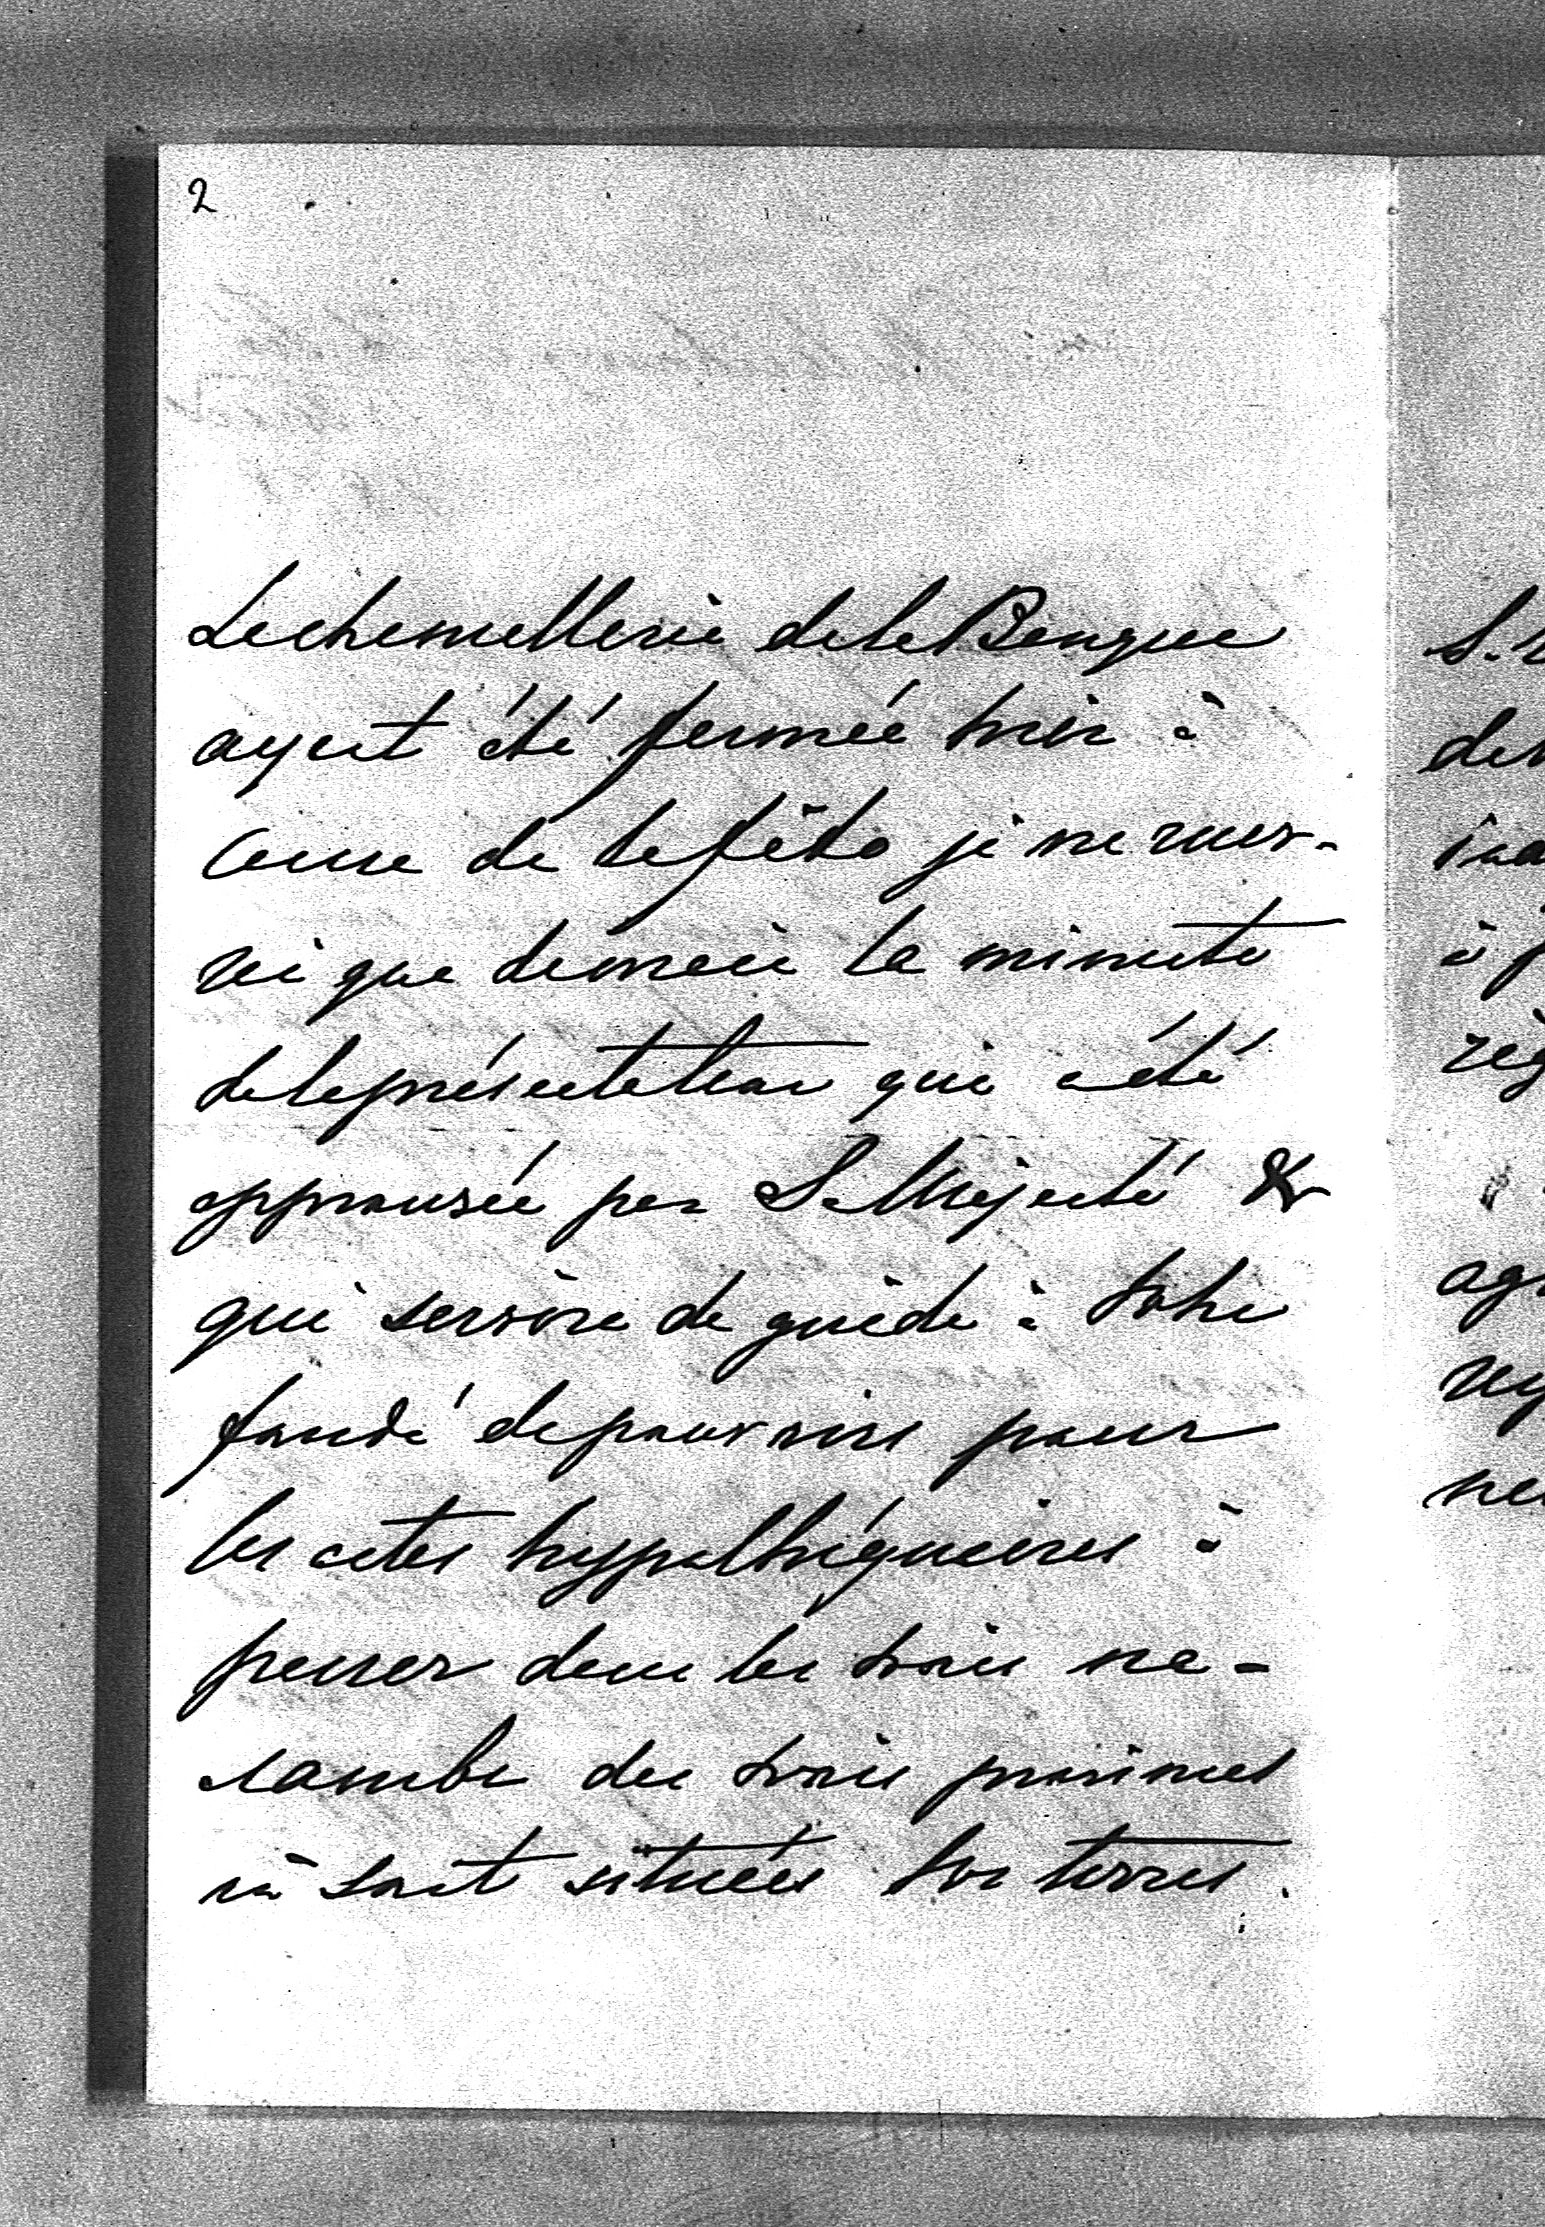 2
La chancellerie de la Banque
ayant été fermée hier à
cause de la fête je ne rece-
vrai que demain la minute
de la présentation qui a été
approuvée par Sa Majesté &
qui servira de guide à Votre
fondé de pouvoirs pour
les actes hypothéquaires à
passer dans les trois
des trois provinces
où sont situées Vos terres.